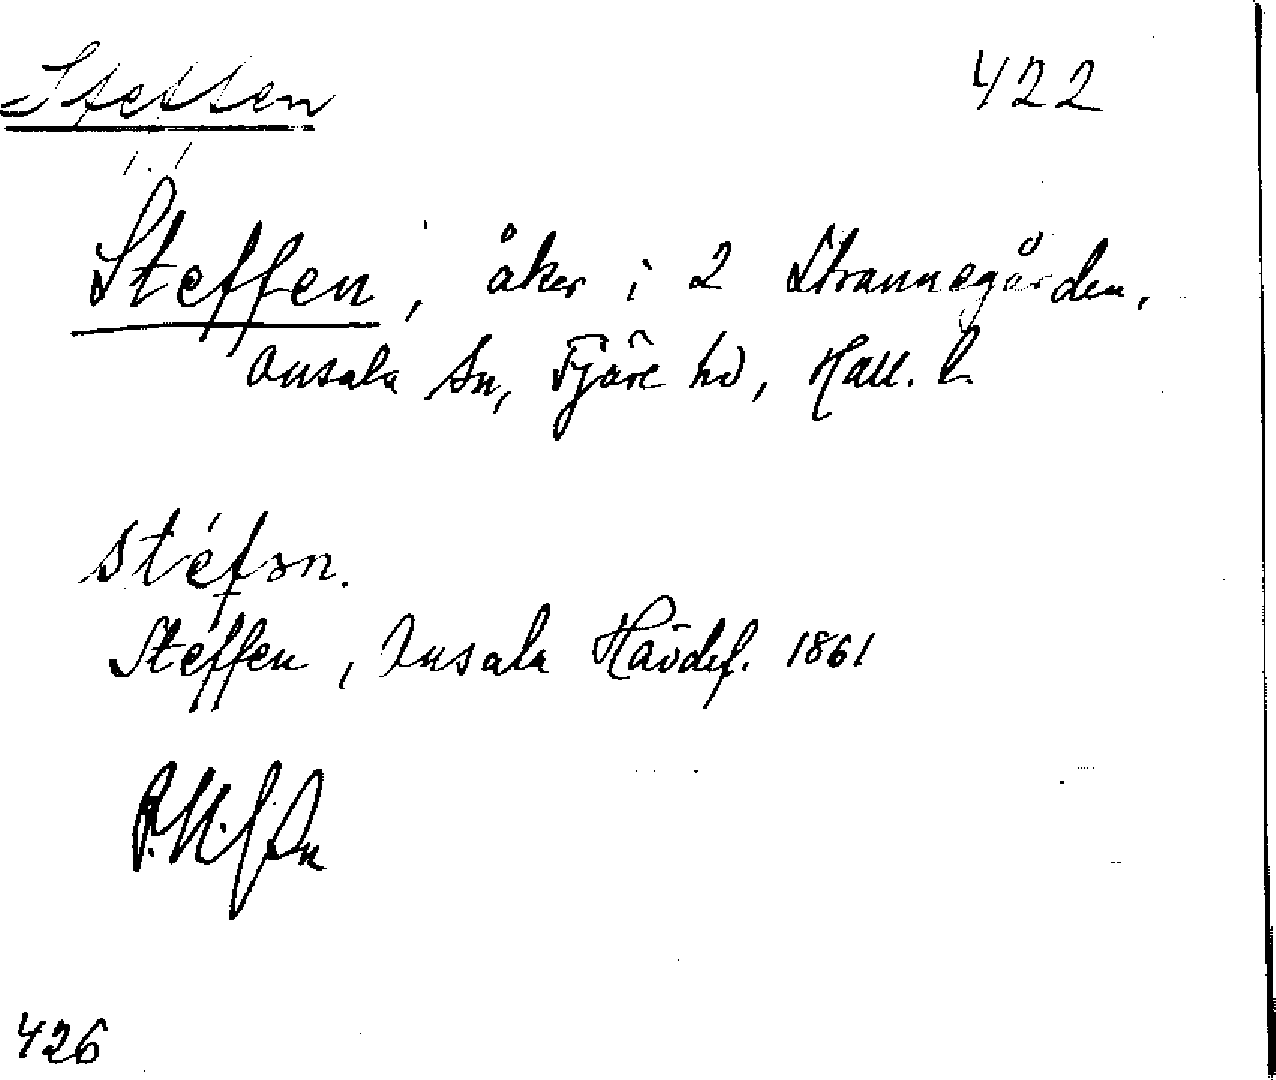 Steffen 422
Steffen, åker i 2 Strannegården,
Onsala sn, Fjäre hd, Hall. l.
stéfən.
Steffen, Onsala Hävdef. 1861
426